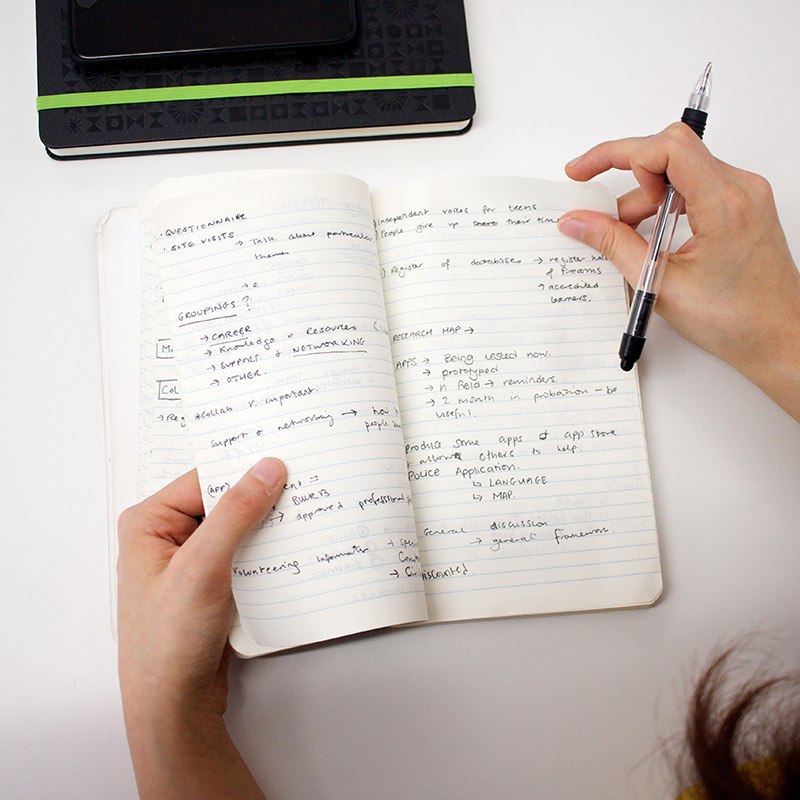 • QUESTIONNAIRE
• SITE VISITS
→ Talk about particular
themes
→ 2
GROUPINGS ?
→ CAREER
→ Knowledge & Resources
→ SUPPORT & NETWORKING
→ OTHER.
*Collab v. important.
support & networking → how
people
(APP)
→ approved professional
Volunteering Information
→
M
COL
→ Reg
Independent voices for teens
People give up their time
Register of databases → register
of firearms
→ accredited
learners.
RESEARCH MAP →
APPS → Being tested now.
→ prototyped
→ n field → reminders
→ 2 month in probation - be
useful.
produce some apps & app store
& allow others to help
POLICE Application.
↳ LANGUAGE
↳ MAP.
General discussion
→ general framework.
discounted.